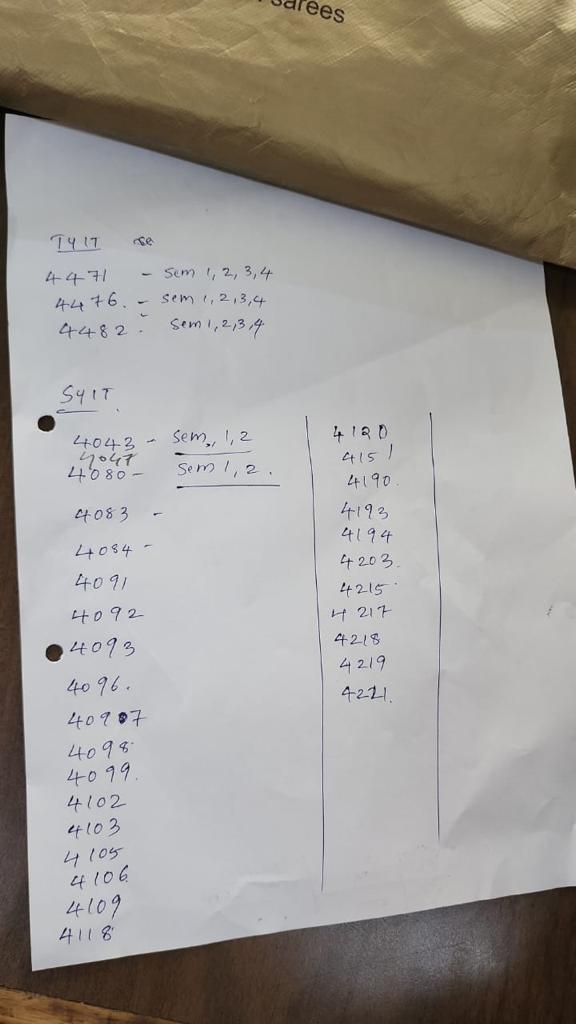 sarees
TYIT
4471 - Sem 1, 2, 3, 4
4476. - Sem 1, 2, 3, 4
4482 - Sem 1, 2, 3, 4
SYIT.
4043 - Sem, 1, 2
4047
4080 - Sem 1, 2.
4083 -
4084 -
4091
4092
4093
4096.
4097
4098
4099.
4102
4103
4105
4106
4109
4118
4120
4151
4190.
4193
4194
4203.
4215
4217
4218
4219
4221.